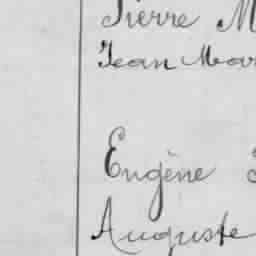 Pierre M
Jean Mar
Eugène
Auguste